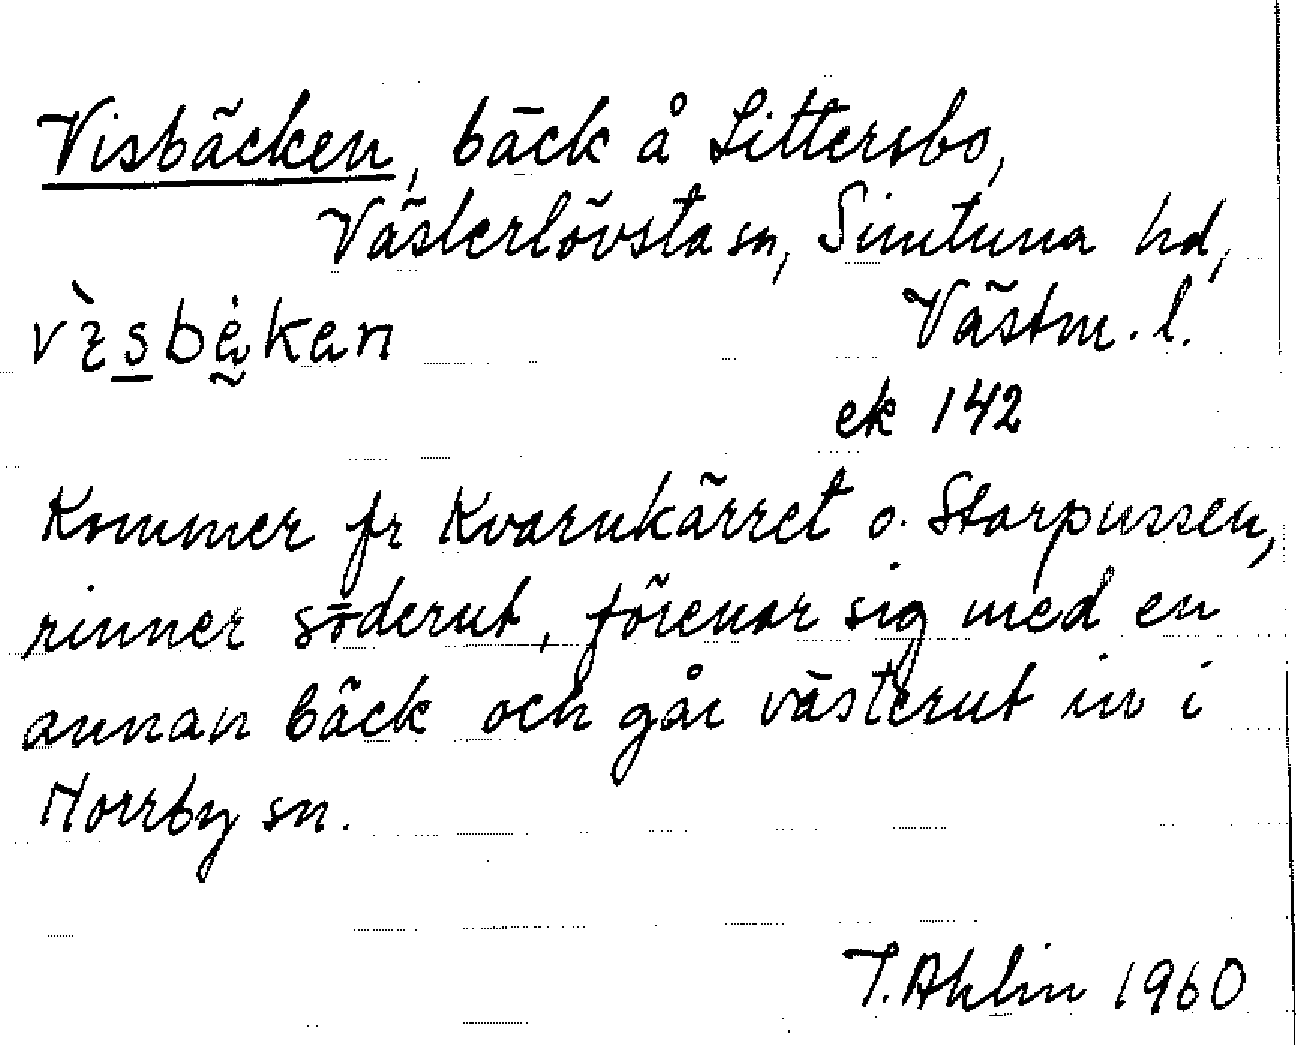 Visbäcken, bäck å Littersbo,
Västerlövsta sn, Simtuna hd,
Västm. l.
ek 142
Kommer fr Kvarnkärret o. Storpussen,
rinner söderut, förenar sig med en
annan bäck och går västerut in i
Norrby sn.
T. Ahlin 1960